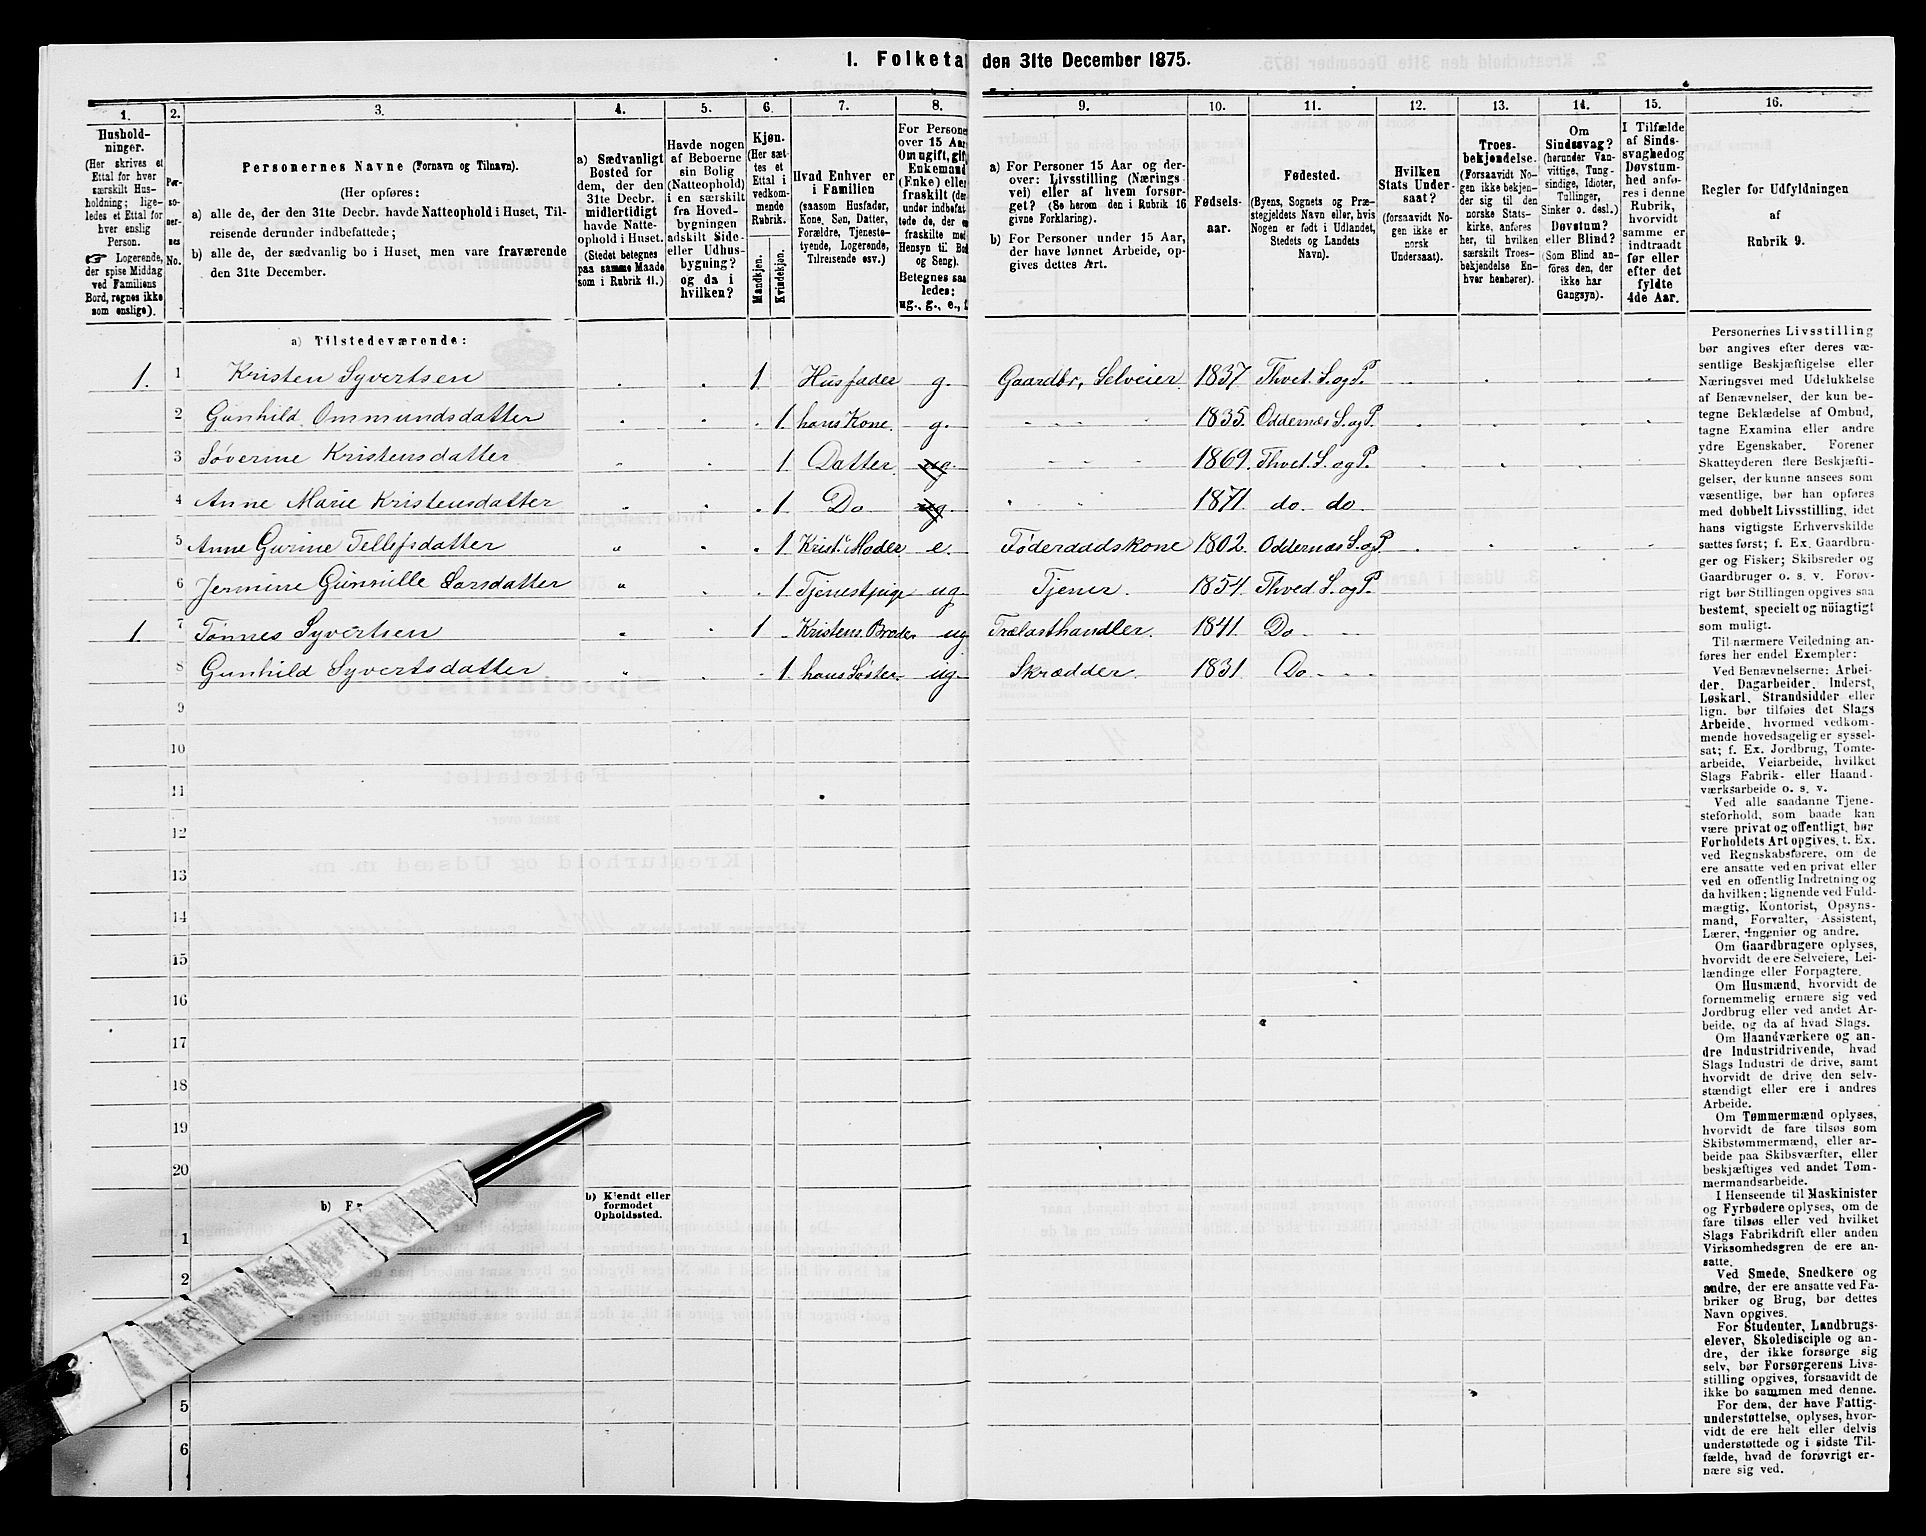 1. Folketa den 31te December 1875.
1. 2. 3. 4. 5. 6. 7. 8. 9. 10. 11. 12. 13. 14. 15. 16.
Hushold-
ninger.
(Her skrives et
Ettal for hver
særskilt Hus-
holdning; lige-
ledes et Ettal for
hver enslig
Person.
☞ Logerende,
der spise Middag
ved Familiens
Bord, regnes ikke
som enslige).
Per-
so-
ner-
nes
No.
Personernes Navne (Fornavn og Tilnavn).
(Her opføres:
a) alle de, der den 31te Decbr. havde Natteophold i Huset, Til-
reisende derunder indbefattede;
b) alle de, der sædvanlig bo i Huset, men vare fraværende
den 31te December.
a) Sædvanligt
Bosted for
dem, der den
31te Decbr.
midlertidigt
havde Natte-
ophold i Huset.
(Stedet betegnes
paa samme Maade
som i Rubrik 11.)
Havde nogen
af Beboerne
sin Bolig
(Natteophold)
i en særskilt
fra Hoved-
bygningen
adskilt Side-
eller Udhus-
bygning?
og da i
hvilken?
Kjøn.
(Her sæt-
tes et
Ettal i
vedkom-
mende
Rubrik.
Mandkjøn.
Kvindekjøn.
Hvad Enhver er
i Familien
(saasom Husfader,
Kone, Søn, Datter,
Forældre, Tjeneste-
tyende, Logerende,
Tilreisende osv.)
For Persone
over 15 Aa
Om ugift, gif
Enkemand
(Enke) elle
fraskilt (der
under indbefat
tede de, der e
fraskilte med
Hensyn til Bo
og Seng).
Betegnes saa
ledes:
ug., g., e., f
a) For Personer 15 Aar og der-
over: Livsstilling (Nærings
vei) eller af hvem forsør-
get? (Se herom den i Rubrik 16
givne Forklaring).
b) For Personer under 15 Aar,
der have lønnet Arbeide, op-
gives dettes Art.
Fødsels-
aar.
Fødested.
(Byens, Sognets og Præ-
stegjeldets Navn eller, hvis
Nogen er født i Udlandet,
Stedets og Landets
Navn).
Hvilken
Stats Under-
saat?
(forsaavidt No-
gen ikke er
norsk
Undersaat).
Troes-
bekjendelse.
(Forsaavidt No-
gen ikke bekjen-
der sig til den
norske Stats-
kirke, anføres
her, til hvilken
særskilt Troes-
bekjendelse En-
hver henhører).
Om
Sindssvag?
(herunder Van-
vittige, Tung-
sindige, Idioter,
Tullinger,
Sinker o. desl.)
Døvstum?
eller Blind?
(Som Blind an-
føres den, der
ikke har
Gangsyn).
I Tilfælde
af Sinds-
svaghed og
Døvstum-
hed anfø-
res i denne
Rubrik,
hvorvidt
samme er
indtraadt
før eller
efter det
fyldte
4de Aar.
Regler for Udfyldningen
af
Rubrik 9.
a) Tilstedeværende:
1. 1 Kristen Syvertsen 1 Husfader g. Gaardbr, Selveier 1837 Thvet. S. og P.
2 Gunhild Ommundsdatter 1 hans Kone. g. 1835. Oddernæs S. og P.
3 Søverine Kristensdatter 1 Datter ug. 1869. Thvet. S. og P.
4 Anne Marie Kristensdatter 1 Do ug. 1871. do. do.
5 Anne Gurine Tellefsdatter 1 Krist.s Moder e. Føderaadskone 1802. Oddernæs S. og P.
6 Jermine Gunnille Larsdatter 1 Tjenestpige ug Tjener. 1854. Thved S. og P.
1. 7 Tønnes Syvertsen 1 Kristens Broder ug Trælasthandler. 1841. Do
8 Gunhild Syvertsdatter 1 hans Søster ug. Skrædder. 1831. Do
9
10
11
12
13
14
15
16
17
18
19
20
b) F
b) Kjendt eller
formodet
Opholdssted.
1
2
5
6
Personernes Livsstilling
bør angives efter deres væ-
sentlige Beskjæftigelse eller
Næringsvei med Udelukkelse
af Benævnelser, der kun be-
tegne Beklædelse af Ombud,
tagne Examina eller andre
ydre Egenskaber. Forener
Skatteyderen flere Beskjæfti-
gelser, der kunne ansees som
væsentlige, bør han opføres
med dobbelt Livsstilling, idet
hans vigtigste Erhvervskilde
sættes først; f. Ex. Gaardbru-
ger og Fisker; Skibsreder og
Gaardbruger o. s. v. Forøv-
rigt bør Stillingen opgives saa
bestemt, specielt og nöiagtigt
som muligt.
Til nærmere Veiledning an-
føres her endel Exempler:
Ved Benævnelserne: Arbei-
der, Dagarbeider, Inderst,
Løskarl, Strandsidder eller
lign. bør tilføies det Slags
Arbeide, hvormed vedkom-
mende hovedsagelig er syssel-
sat; f. Ex. Jordbrug, Tomte-
arbeide, Veiarbeide, hvilket
Slags Fabrik- eller Haand-
værksarbeide o. s. v.
Ved alle saadanne Tjene-
steforhold, som baade kan
være privat og offentligt, bør
Forholdets Art opgives, t. Ex.
ved Regnskabsførere, om de
ere ansatte ved en privat eller
ved en offentlig Indretning og
da hvilken; lignende ved Fuld-
mægtig, Kontorist, Opsyns-
mand, Forvalter, Assistent,
Lærer, Ingeniør og andre.
Om Gaardbrugere oplyses,
hvorvidt de ere Selveiere, Lei-
lændinge eller Forpagtere.
Om Husmænd, hvorvidt de
fornemmelig ernære sig ved
Jordbrug eller ved andet Ar-
beide, og da af hvad Slags.
Om Haandværkere og an-
dre Industridrivende, hvad
Slags Industri de drive, samt
hvorvidt de drive den selv-
stændigt eller ere i andres
Arbeide.
Om Tømmermænd oplyses,
hvorvidt de fare tilsøs som
Skibstømmermænd, eller ar-
beide paa Skibsværfter, eller
beskjæftiges ved andet Tøm-
mermandsarbeide.
I Henseende til Maskinister
og Fyrbødere oplyses, om de
fare tilsøs eller ved hvilket
Slags Fabrikdrift eller anden
Virksomhedsgren de ere an-
satte.
Ved Smede, Snedkere og
andre, der ere ansatte ved Fa-
briker og Brug, bør dettes
Navn opgives.
For Studenter, Landbrugs-
elever, Skoledisciple og an-
dre, der ikke forsørge sig
selv, bør Forsørgerens Livs-
stilling opgives, forsaavidt de
ikke bo sammen med denne.
For dem, der have Fattig-
understøttelse, oplyses, hvor-
vidt de ere helt eller delvis
understøttede og i sidste Til-
fælde, hvad de forøvrigt er-
nære sig ved.